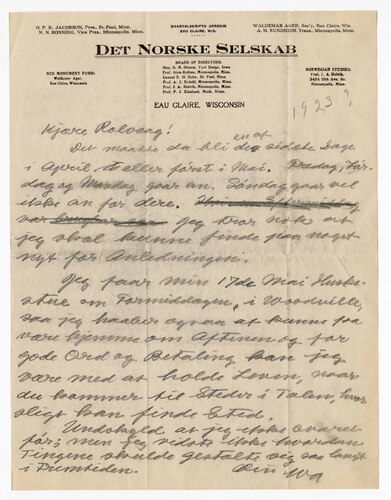 O. P. B. JACOBSON, Pres., St. Paul, Minn.
N. N. RONNING, Vice Pres., Minneapolis, Minn.
KVARTALSKRIFTS ADRESSE
EAU CLAIRE, WIS.
WALDEMAR AGER, Sec'y, Eau Claire, Wis.
A. M. SUNDHEIM, Treas., Minneapolis, Minn.
DET NORSKE SELSKAB
HEG MONUMENT FUND:
Waldemar Ager,
Eau Claire, Wisconsin
BOARD OF DIRECTORS:
Hon. O. M. Oleson, Fort Dodge, Iowa
Prof. Gisle Bothne, Minneapolis, Minn.
Consul E. H. Hobe, St. Paul, Minn.
Prof. A. C. Erdahl, Minneapolis, Minn.
Prof. J. A. Holvik, Minneapolis, Minn.
Prof. P. J. Eikeland, Minn.
NORWEGIAN STUDIES:
Prof. J. A. Holvik,
Minneapolis, Minn.
EAU CLAIRE, WISCONSIN
1923?
Kjære Rolvaag!
Det maatte da bli en af de sidste Dage
i April, eller først i Mai. Fredag, Lør-
dag og Mandag gaar an. Søndag gaar vel
ikke an for dere.
var jeg tror nok at
jeg skal kunne finde paa noget
nyt for Anledningen.
Jeg faar min 17de Mai Huske-
stue om Formiddagen, i Woodville,
saa jeg haaber ogsaa at kunne faa
være hjemme om Aftenen og for
gode Ord og Betaling kan jeg
være med at holde Leven, naar
du kommer til Steder i Talen, hvor
sligt kan finde Sted.
Undskyld at jeg ikke svared
før; men jeg vidste ikke hvordan
Tingene skulde gestalte sig saa langt
i Fremtiden.
Din Wa